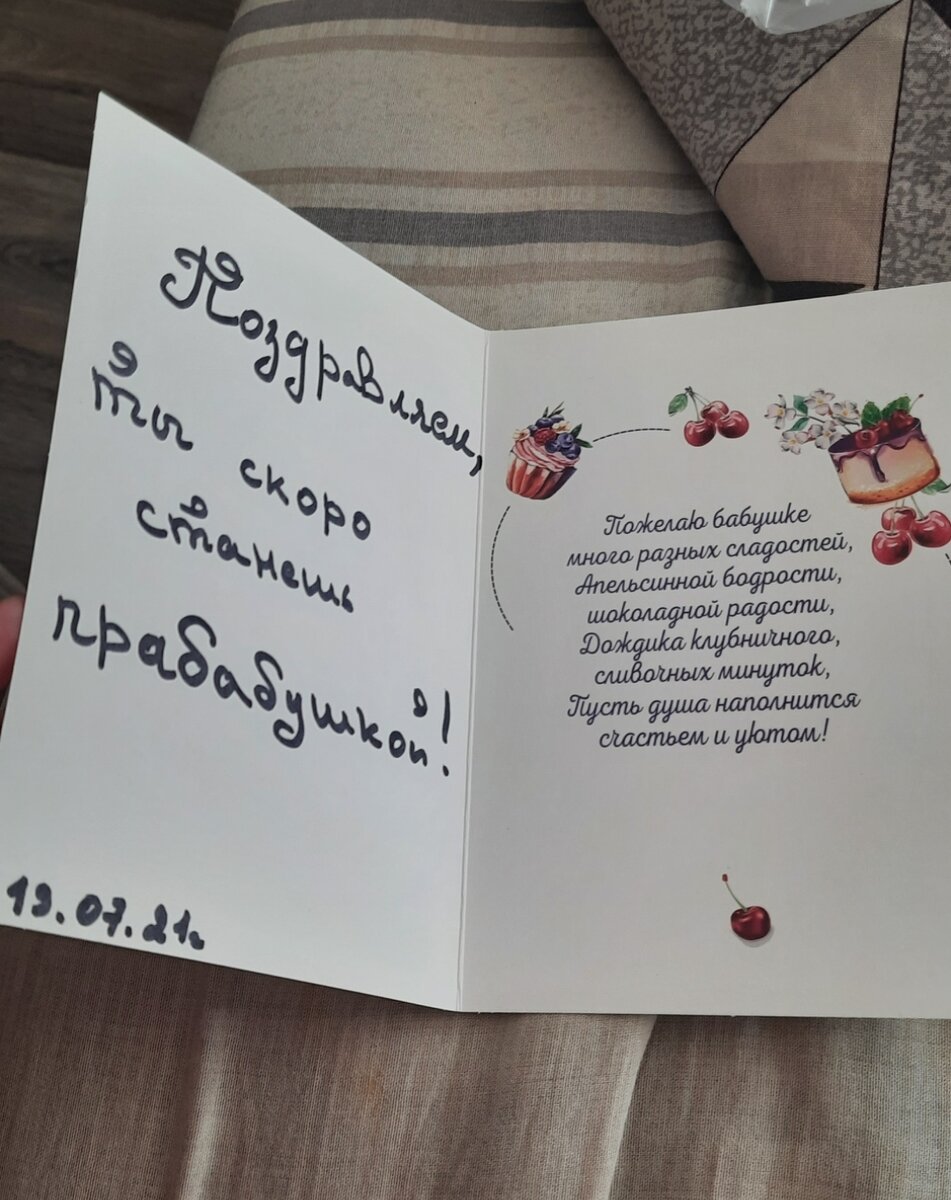 Поздравляем,
ты скоро
станешь
прабабушкой!
19.07.21г
Пожелаю бабушке
много разных сладостей,
Апельсинной бодрости,
шоколадной радости,
Дождика клубничного,
сливочных минуток,
Пусть душа наполнится
счастьем и уютом!